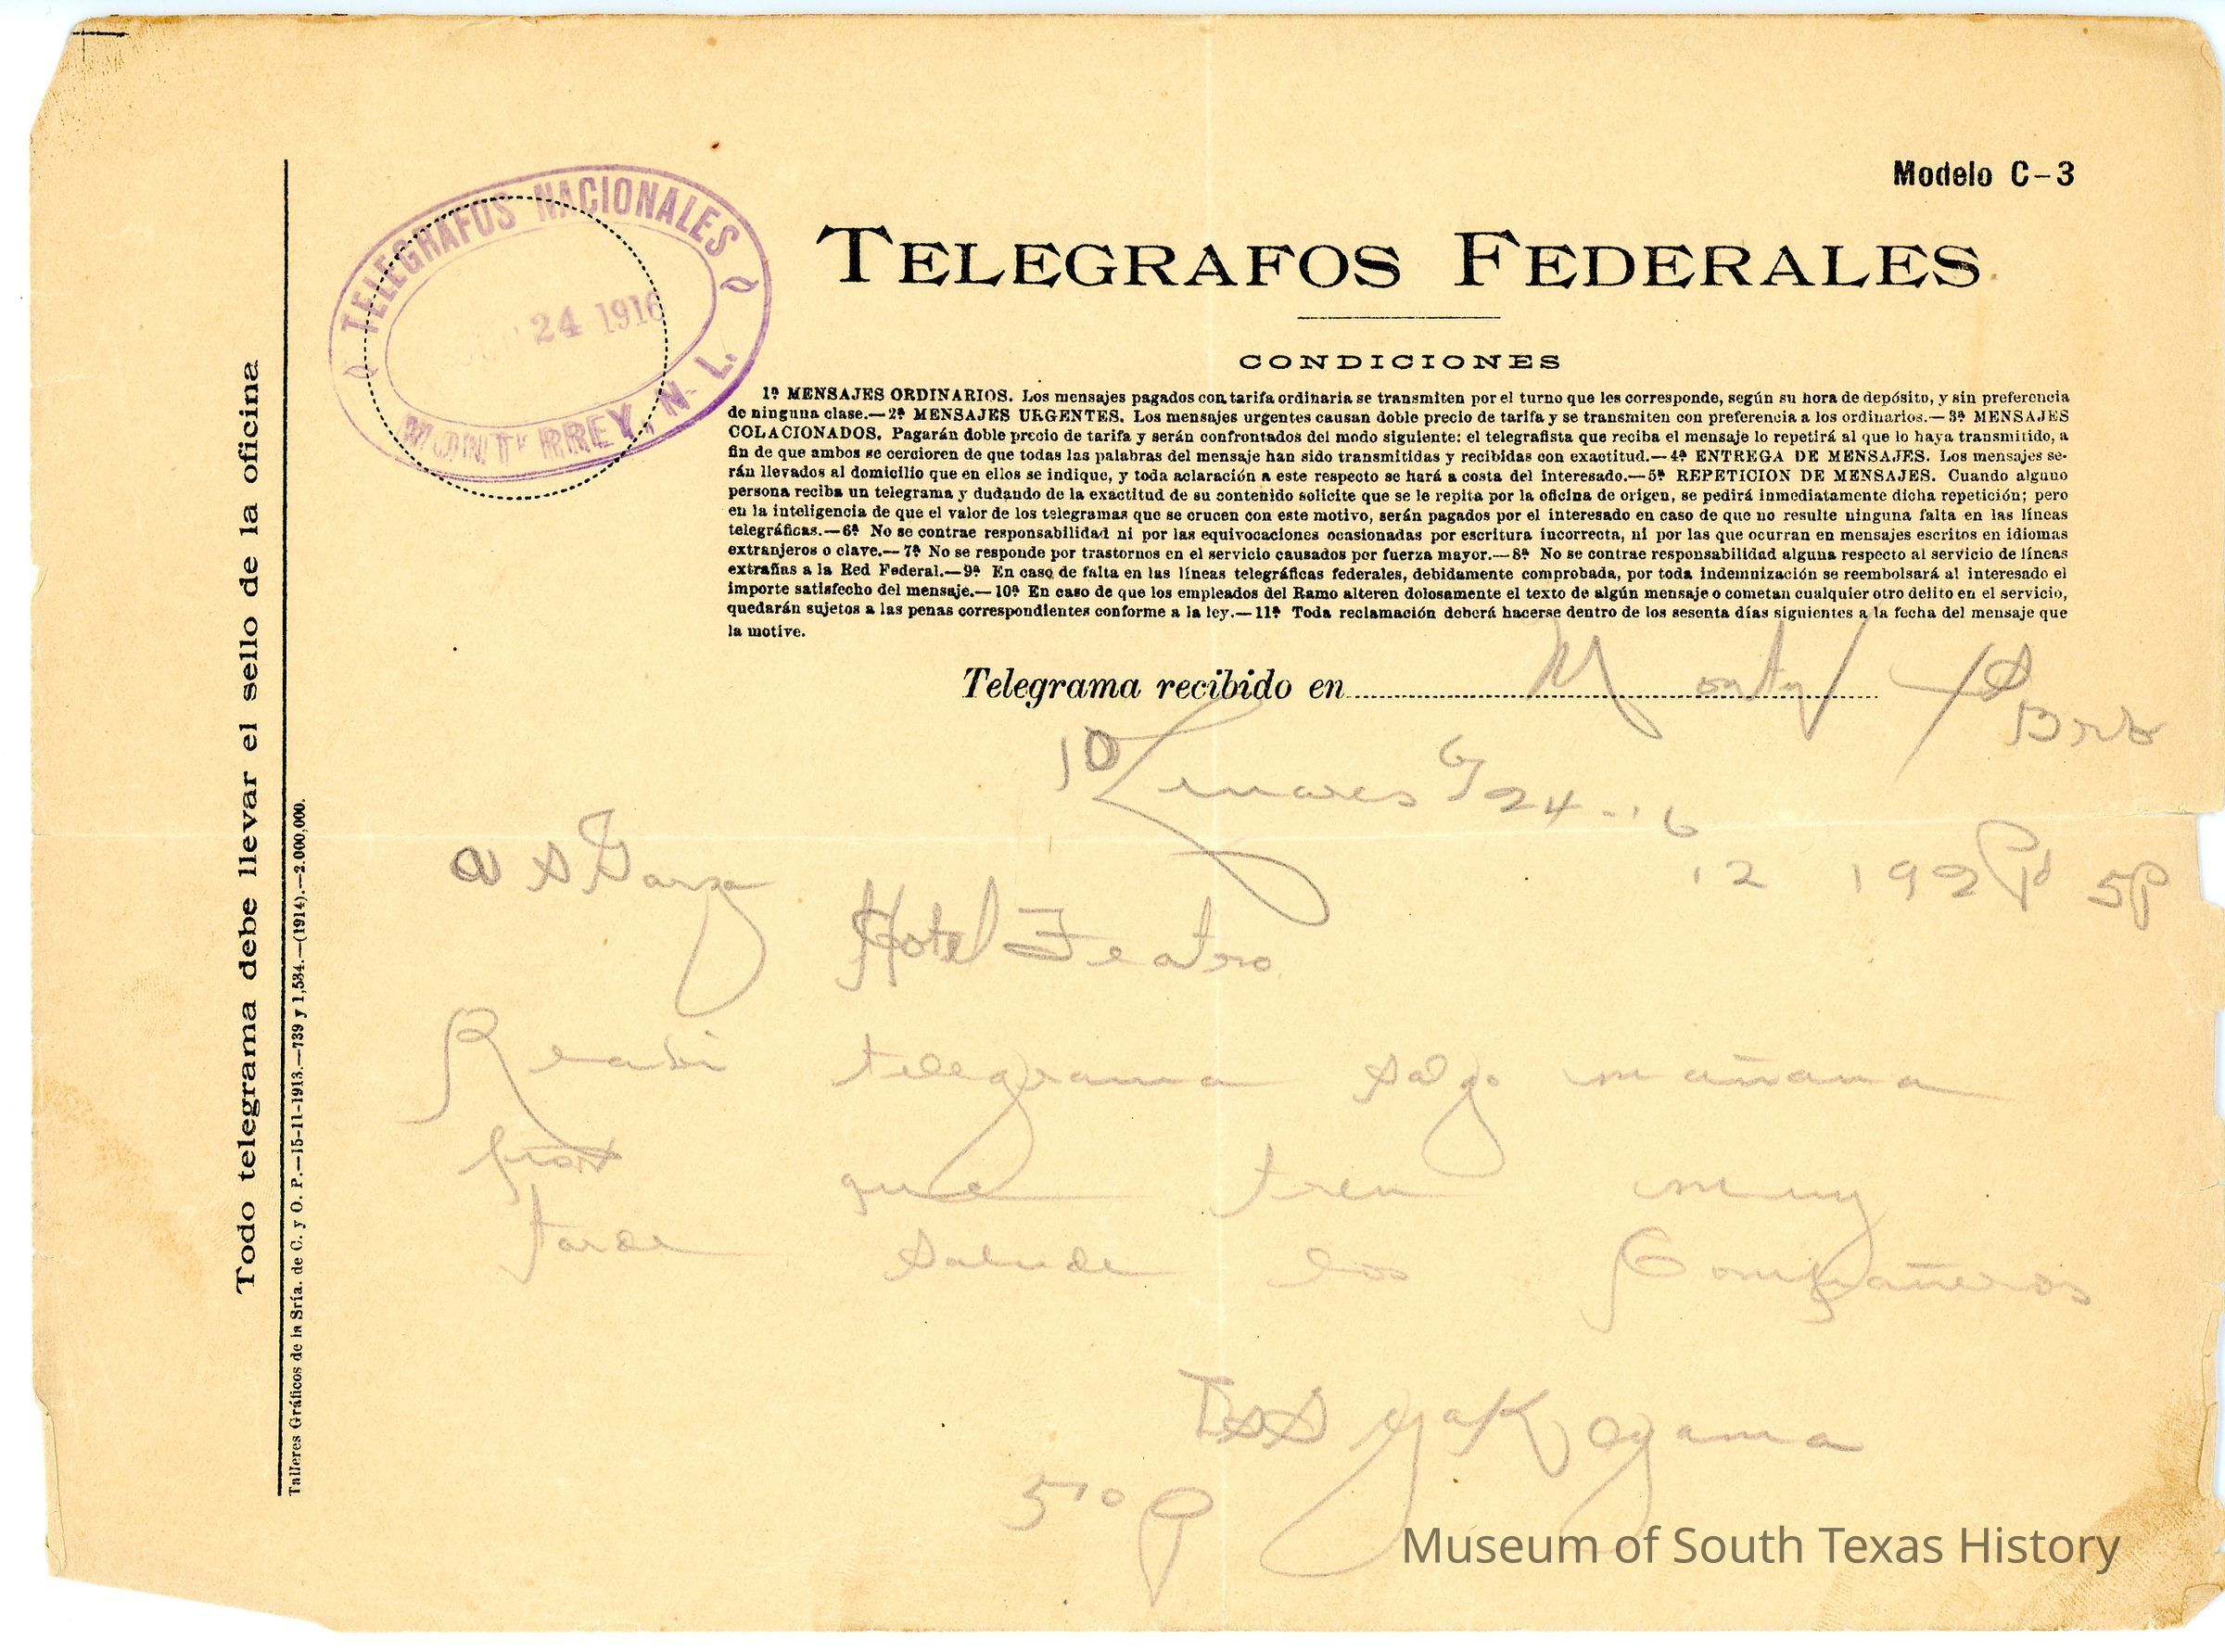 Modelo C-3
TELEGRAFOS NACIONALES
24 1916
MONTERREY, N. L.
TELEGRAFOS FEDERALES
CONDICIONES
1ª MENSAJES ORDINARIOS. Los mensajes pagados con tarifa ordinaria se transmiten por el turno que les corresponde, según su hora de depósito, y sin preferencia
de ninguna clase.—2ª MENSAJES URGENTES. Los mensajes urgentes causan doble precio de tarifa y se transmiten con preferencia a los ordinarios.—3ª MENSAJES
COLACIONADOS. Pagarán doble precio de tarifa y serán confrontados del modo siguiente: el telegrafista que reciba el mensaje lo repetirá al que lo haya transmitido, a
fin de que ambos se cercioren de que todas las palabras del mensaje han sido transmitidas y recibidas con exactitud.—4ª ENTREGA DE MENSAJES. Los mensajes se-
rán llevados al domicilio que en ellos se indique, y toda aclaración a este respecto se hará a costa del interesado.—5ª REPETICION DE MENSAJES. Cuando alguno
persona reciba un telegrama y dudando de la exactitud de su contenido solicite que se le repita por la oficina de origen, se pedirá inmediatamente dicha repetición; pero
en la inteligencia de que el valor de los telegramas que se crucen con este motivo, serán pagados por el interesado en caso de que no resulte ninguna falta en las líneas
telegráficas.—6ª No se contrae responsabilidad ni por las equivocaciones ocasionadas por escritura incorrecta, ni por las que ocurran en mensajes escritos en idiomas
extranjeros o clave.—7ª No se responde por trastornos en el servicio causados por fuerza mayor.—8ª No se contrae responsabilidad alguna respecto al servicio de líneas
extrañas a la Red Federal.—9ª En caso de falta en las líneas telegráficas federales, debidamente comprobada, por toda indemnización se reembolsará al interesado el
importe satisfecho del mensaje.—10ª En caso de que los empleados del Ramo alteren dolosamente el texto de algún mensaje o cometan cualquier otro delito en el servicio,
quedarán sujetos a las penas correspondientes conforme a la ley.—11ª Toda reclamación deberá hacerse dentro de los sesenta días siguientes a la fecha del mensaje que
la motive.
Telegrama recibido en Monty
10 Linares 6/24-16
12 192 Pd 5P
a S Garza
Hotel Teatro
Recibi telegrama salgo mañana
por que tren muy
tarde salude los Compañeros
510 P
Todo telegrama debe llevar el sello de la oficina
Talleres Gráficos de la Sría. de C. y O. P.—15-11-1913.—739 y 1,584.—(1914).—2.000,000.
Museum of South Texas History